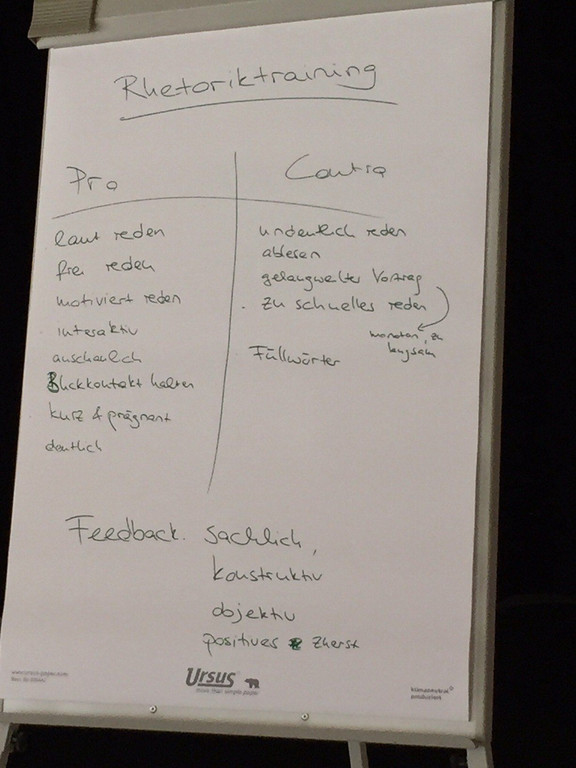 Rhetoriktraining
Pro
laut reden
frei reden
motiviert reden
interaktiv
anschaulich
Blickkontakt halten
kurz & prägnant
deutlich
Contra
undeutlich reden
ablesen
gelangweilter Vortrag
zu schnelles reden
monoton, zu
langsam
Füllwörter
Feedback. sachlich,
konstruktiv
objektiv
positives zuerst
Ursus
more than simple paper
klimaneutral